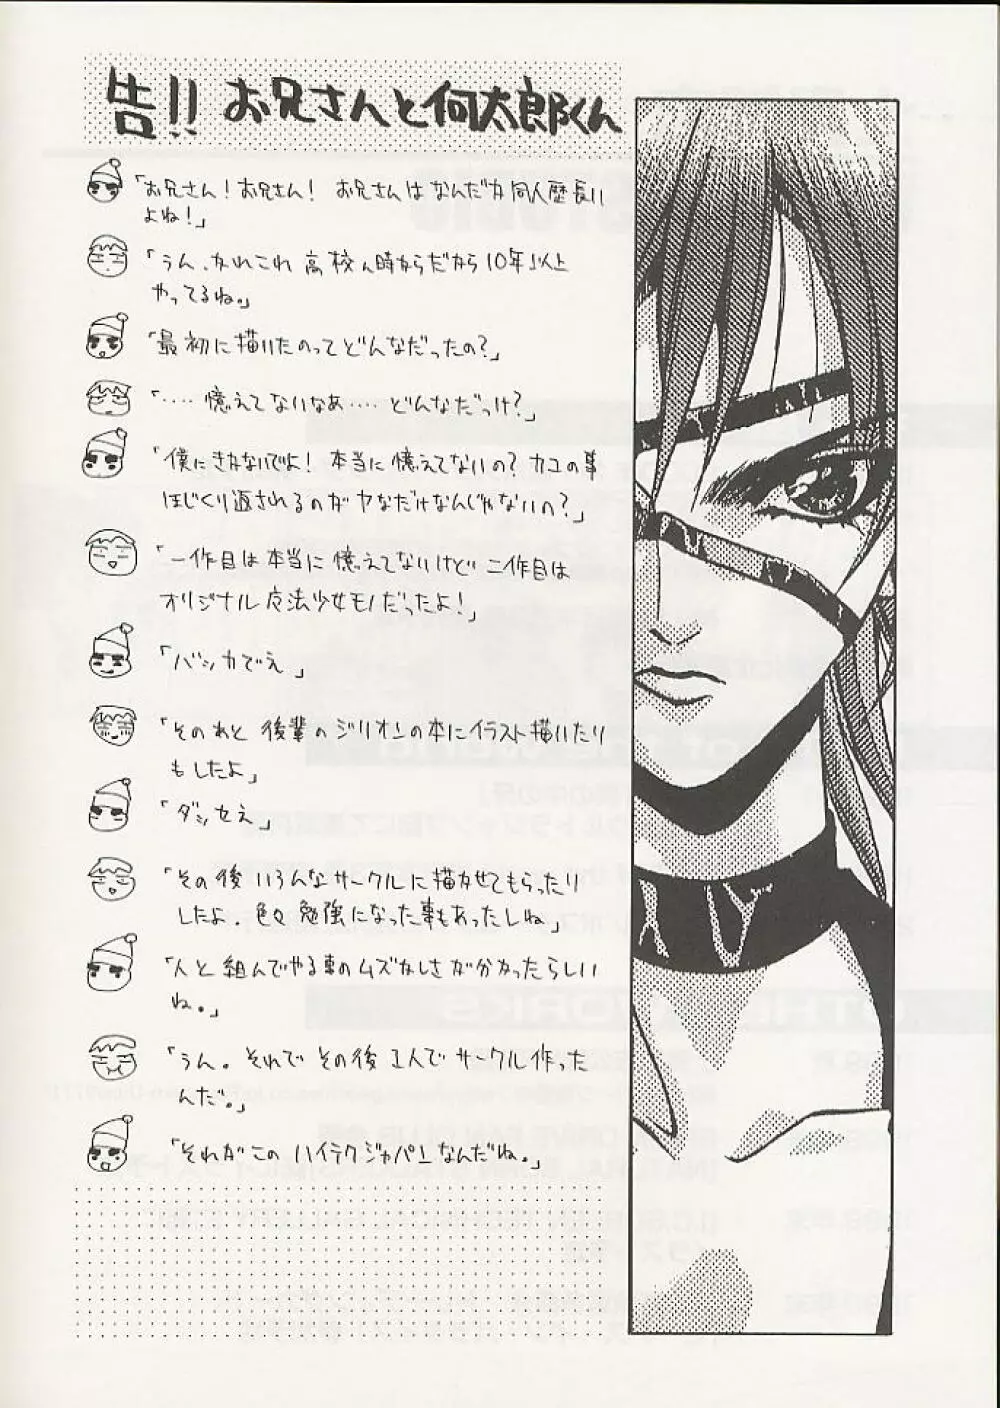 告!! お兄さんと何太郎くん
「お兄さん!お兄さん! お兄さんはなんだか同人歴長い
よね!」
「うん、かれこれ高校ん時からだから10年以上
やってるね。」
「最初に描いたのってどんなだったの?」
「‥‥憶えてないなあ‥‥どんなだっけ?」
「僕にきかないでよ! 本当に憶えてないの? カコの事
ほじくり返されるのがヤなだけなんじゃないの?」
「一作目は本当に憶えてないけど二作目は
オリジナル魔法少女モノだったよ!」
「バッカでえ」
「そのあと後輩のジリオンの本にイラスト描いたり
もしたよ」
「ダッセえ」
「その後いろんなサークルに描かせてもらったり
したよ、色々勉強になった事もあったしね」
「人と組んでやる事のムズカしさが分かったらしい
ね。」
「うん。それでその後1人でサークル作った
んだ。」
「それがこのハイテクジャパンなんだね。」